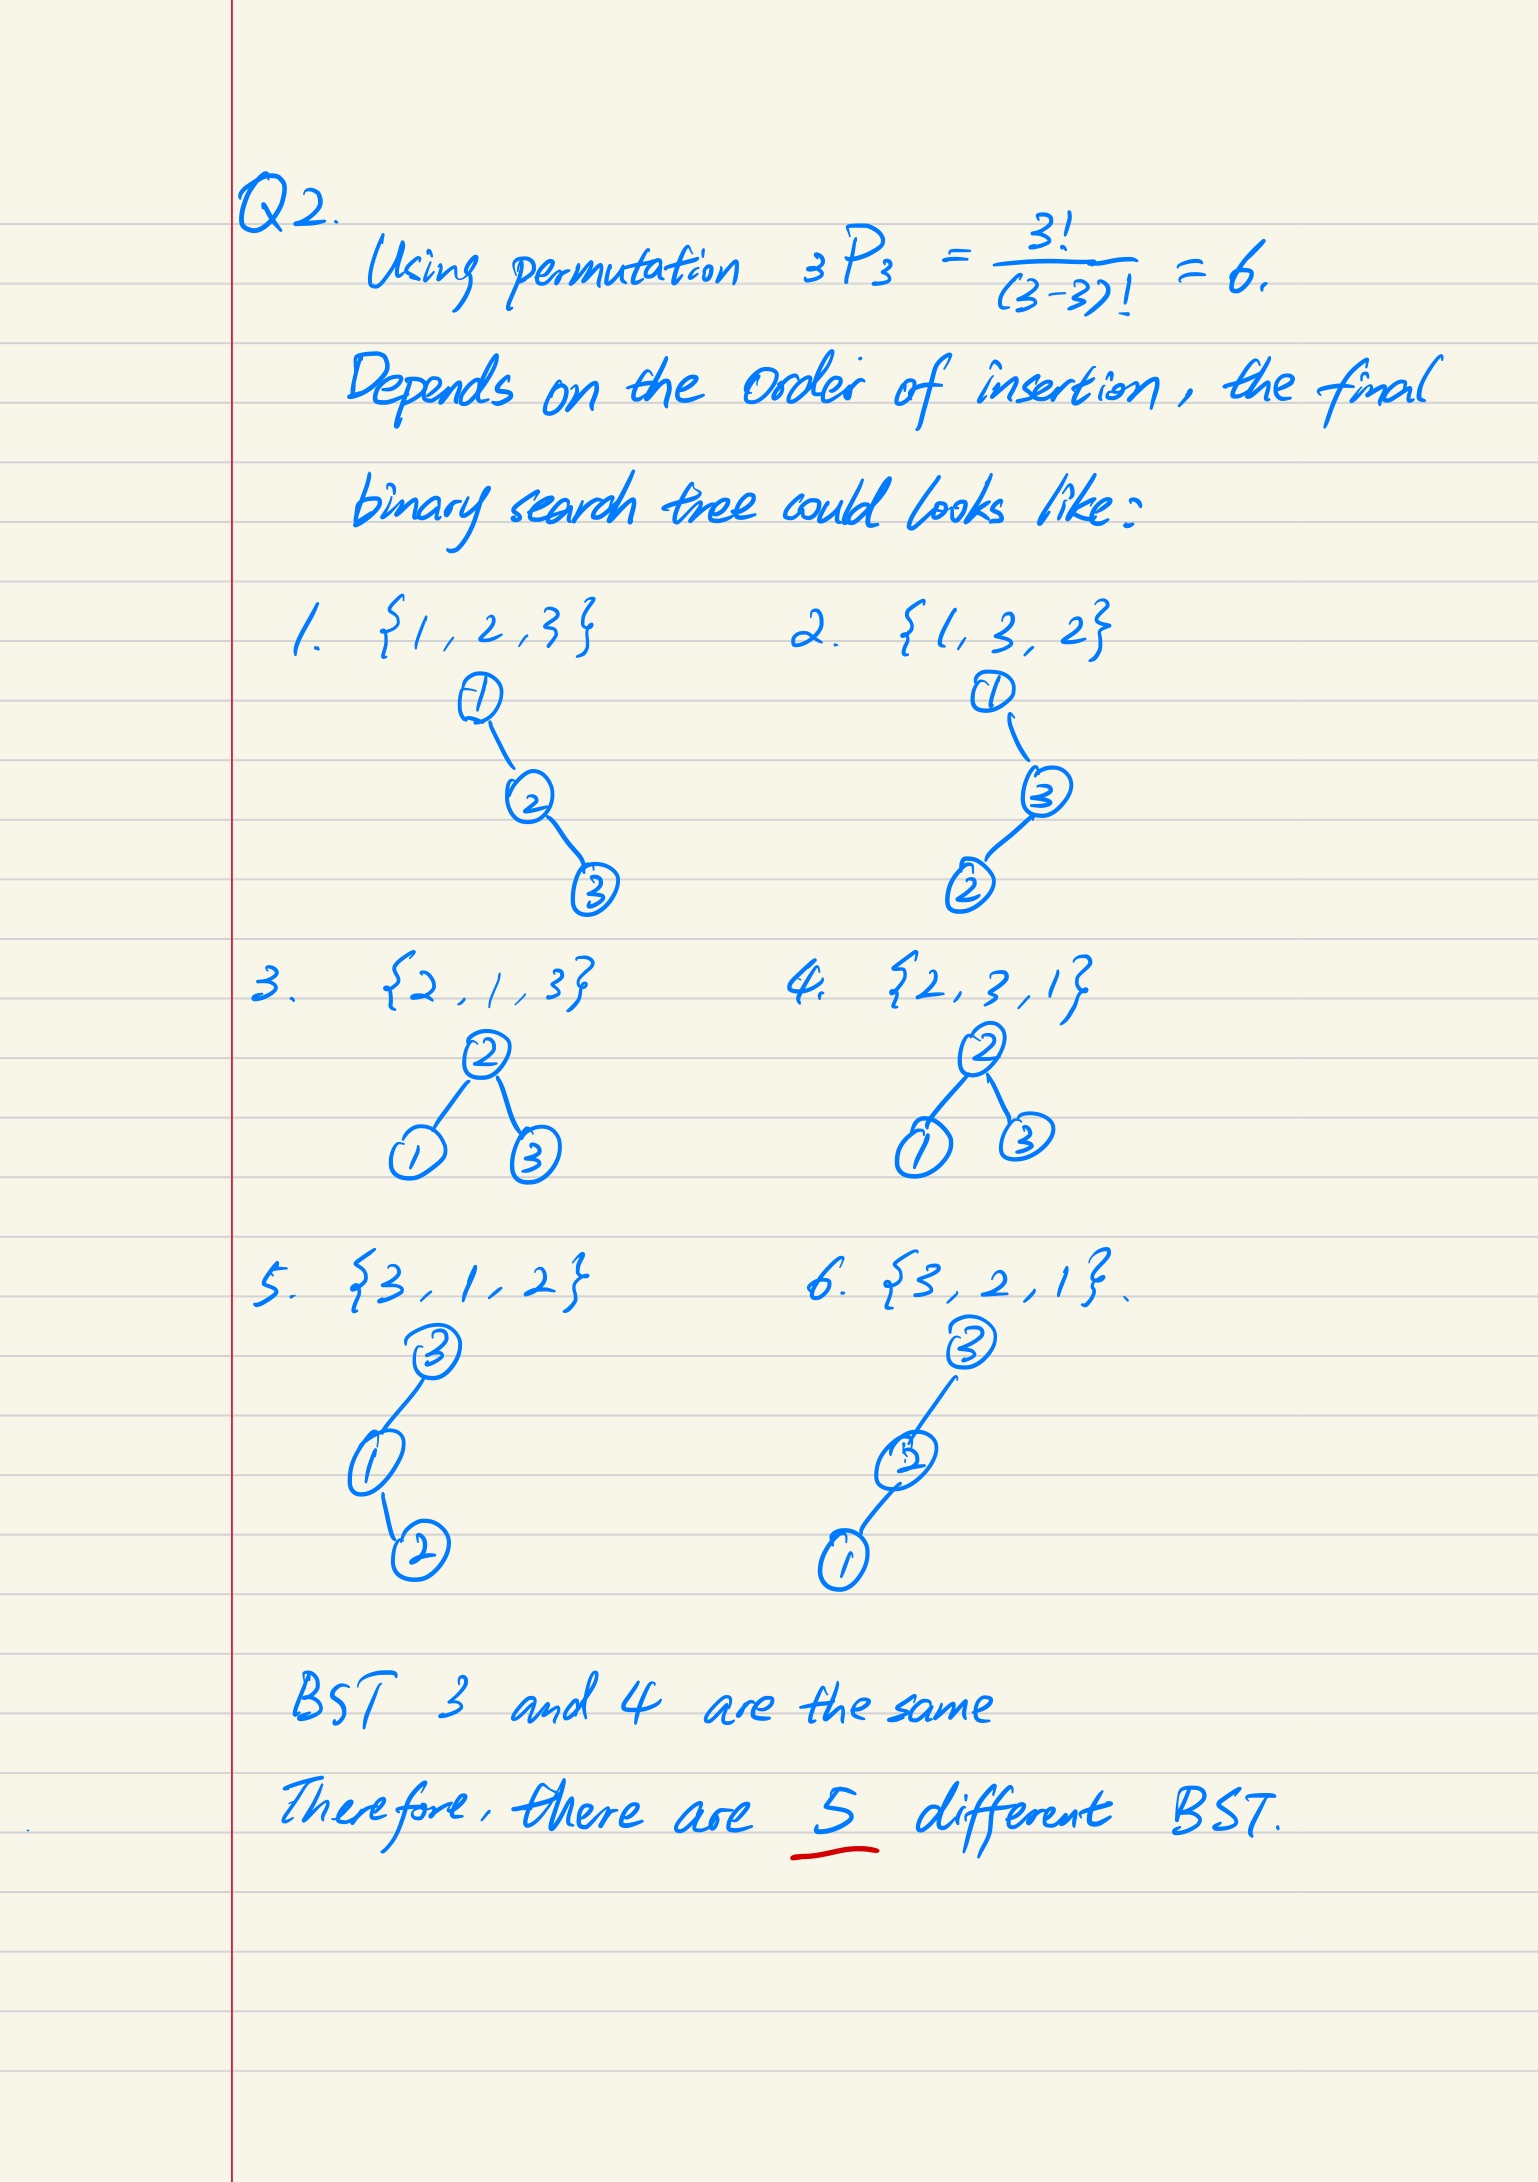 Q2.
Using permutation ₃P₃ = 3!/(3-3)! = 6.
Depends on the order of insertion, the final
binary search tree could looks like:
1. {1, 2, 3} 2. {1, 3, 2}
1 1
2 3
3 2
3. {2, 1, 3} 4. {2, 3, 1}
2 2
1 3 1 3
5. {3, 1, 2} 6. {3, 2, 1}.
3 3
1 2
2 1
BST 3 and 4 are the same
Therefore, there are 5 different BST.